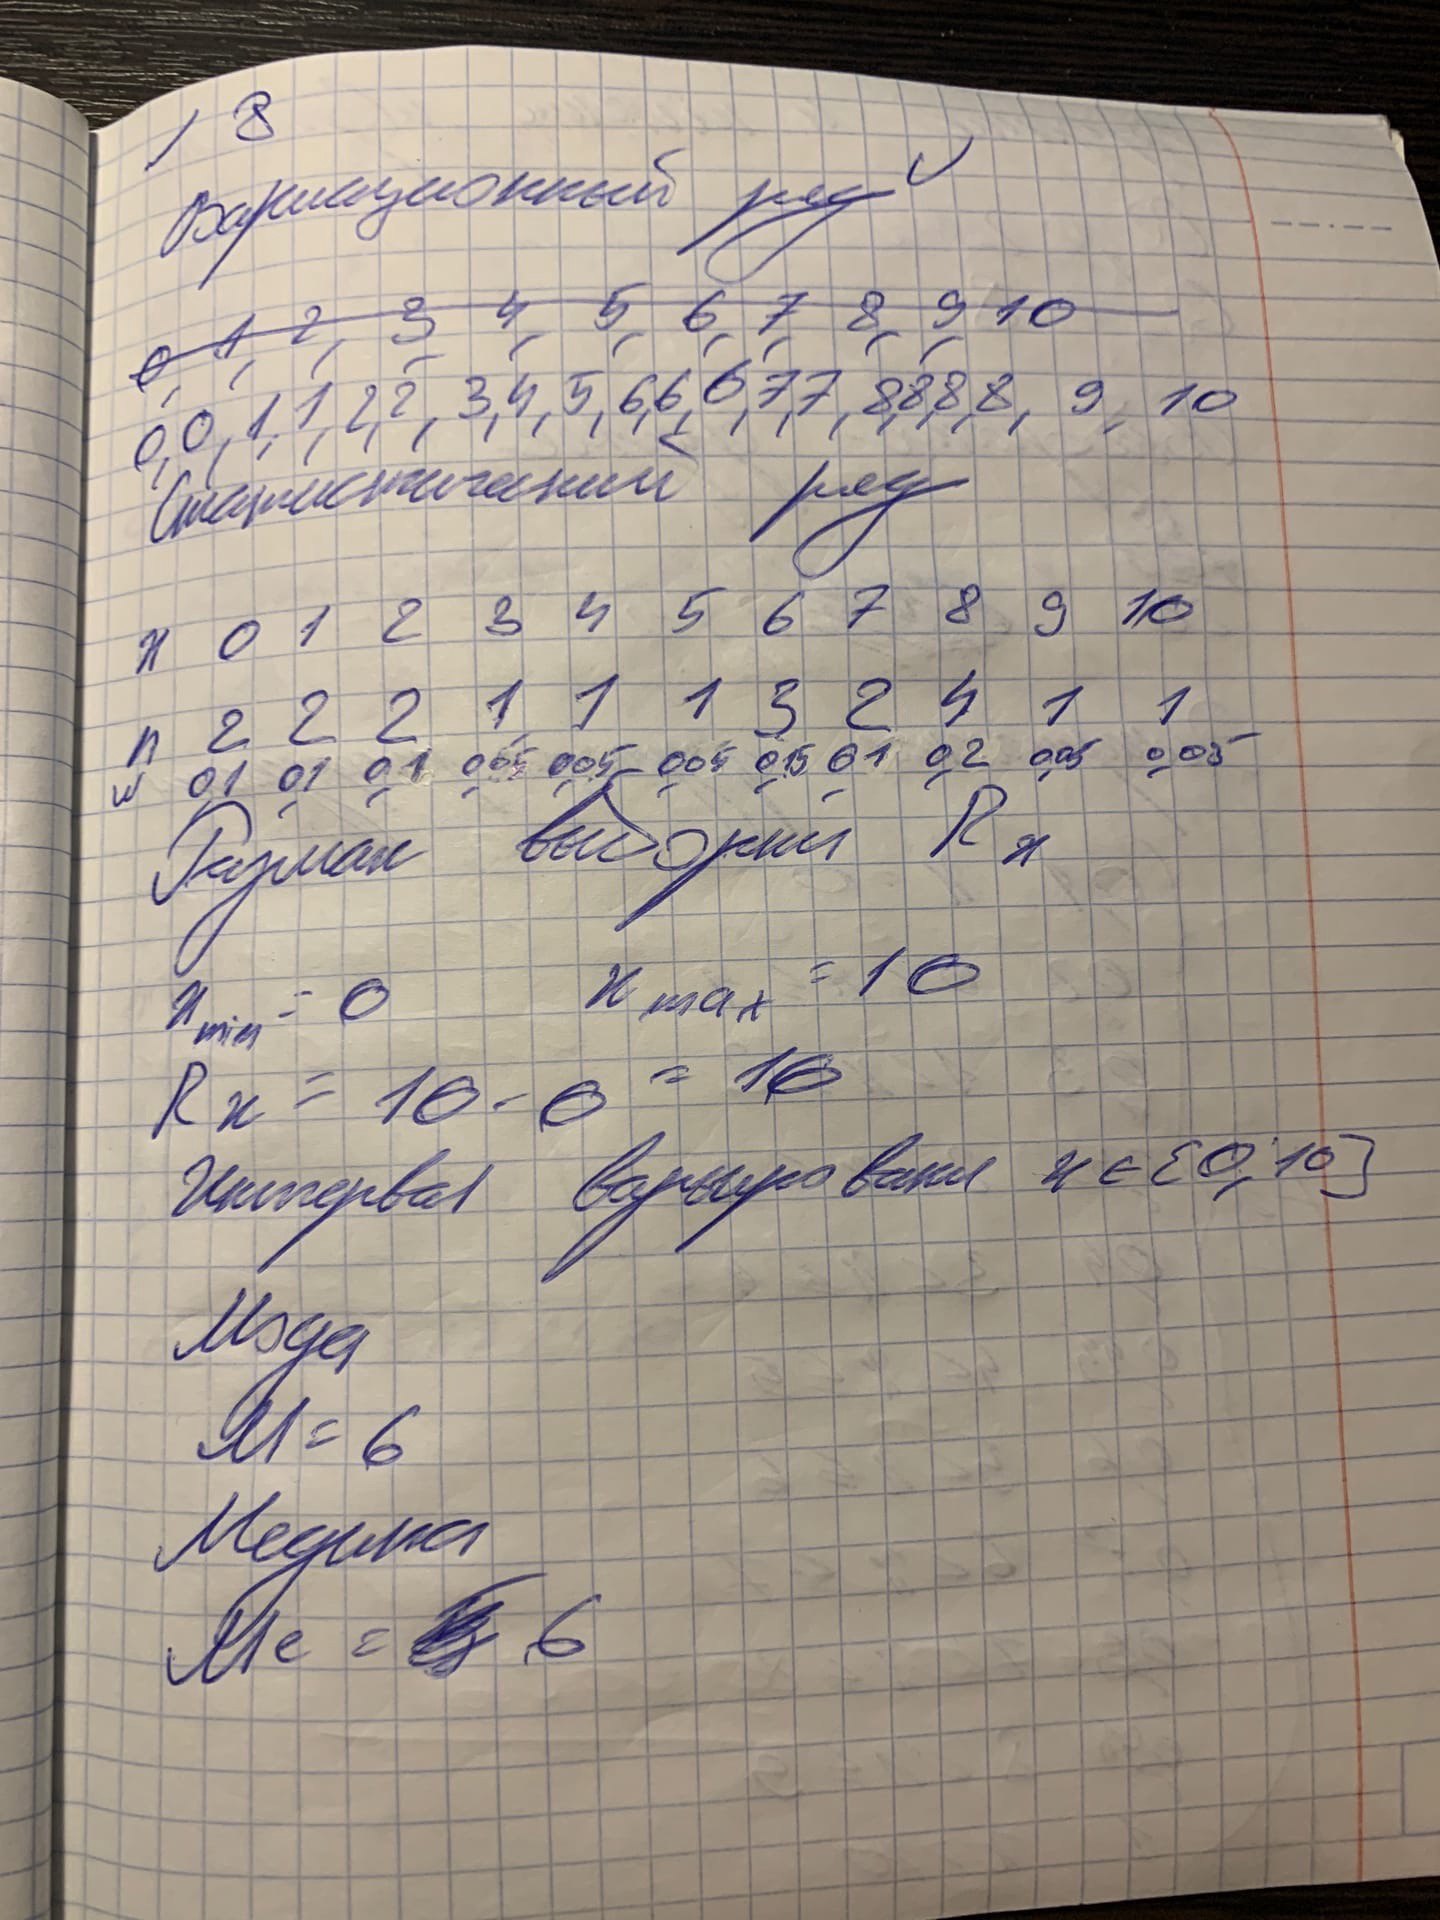 / 8
Вариационный ряд
0, 1, 2, 3, 4, 5, 6, 7, 8, 9 10
0,0,1,1,2,2,3,4,5,6,6,6,7,7,8,8,8,8,9,10
Статистический ряд
x 0 1 2 3 4 5 6 7 8 9 10
n 2 2 2 1 1 1 3 2 4 1 1
w 0,1 0,1 0,1 0,05 0,05 0,05 0,15 0,1 0,2 0,05 0,05
Размах выборки Rx
xmin = 0 xmax = 10
Rx = 10 - 0 = 10
Интервал варьирования x ∈ [0; 10]
Мода
M = 6
Медиана
Me = 6